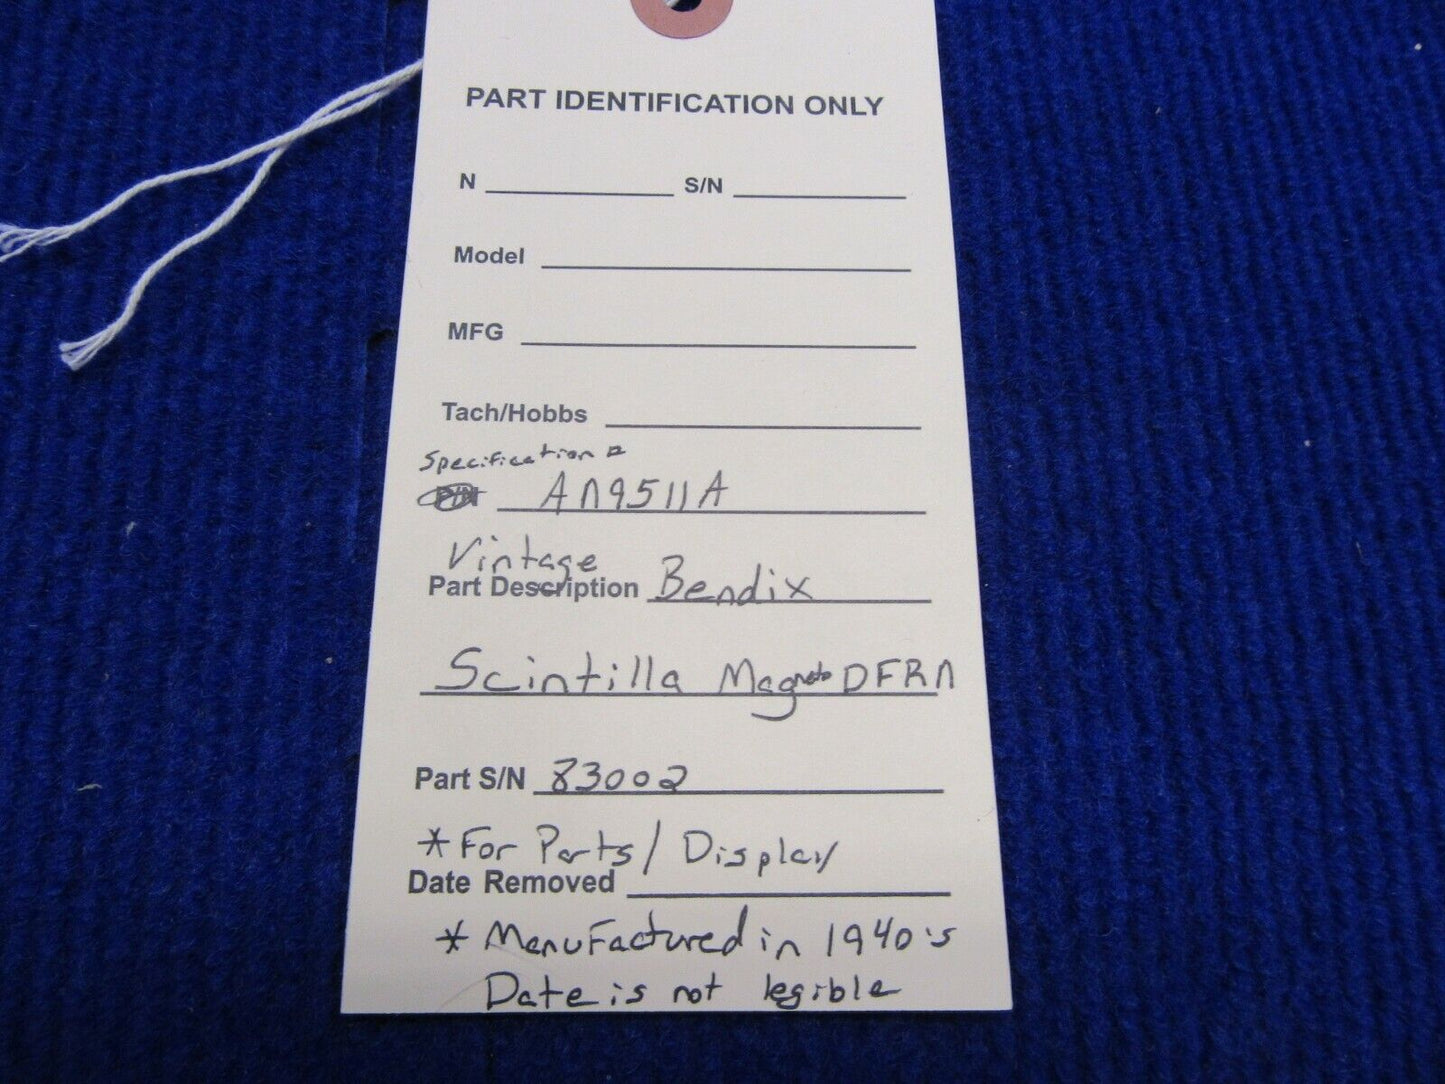 PART IDENTIFICATION ONLY
N S/N
Model
MFG
Tach/Hobbs
Specification #
P/N AN9511A
Vintage
Part Description Bendix
Scintilla Magneto DFRN
Part S/N 83002
* For Parts / Display
Date Removed
* Manufactured in 1940's
Date is not legible